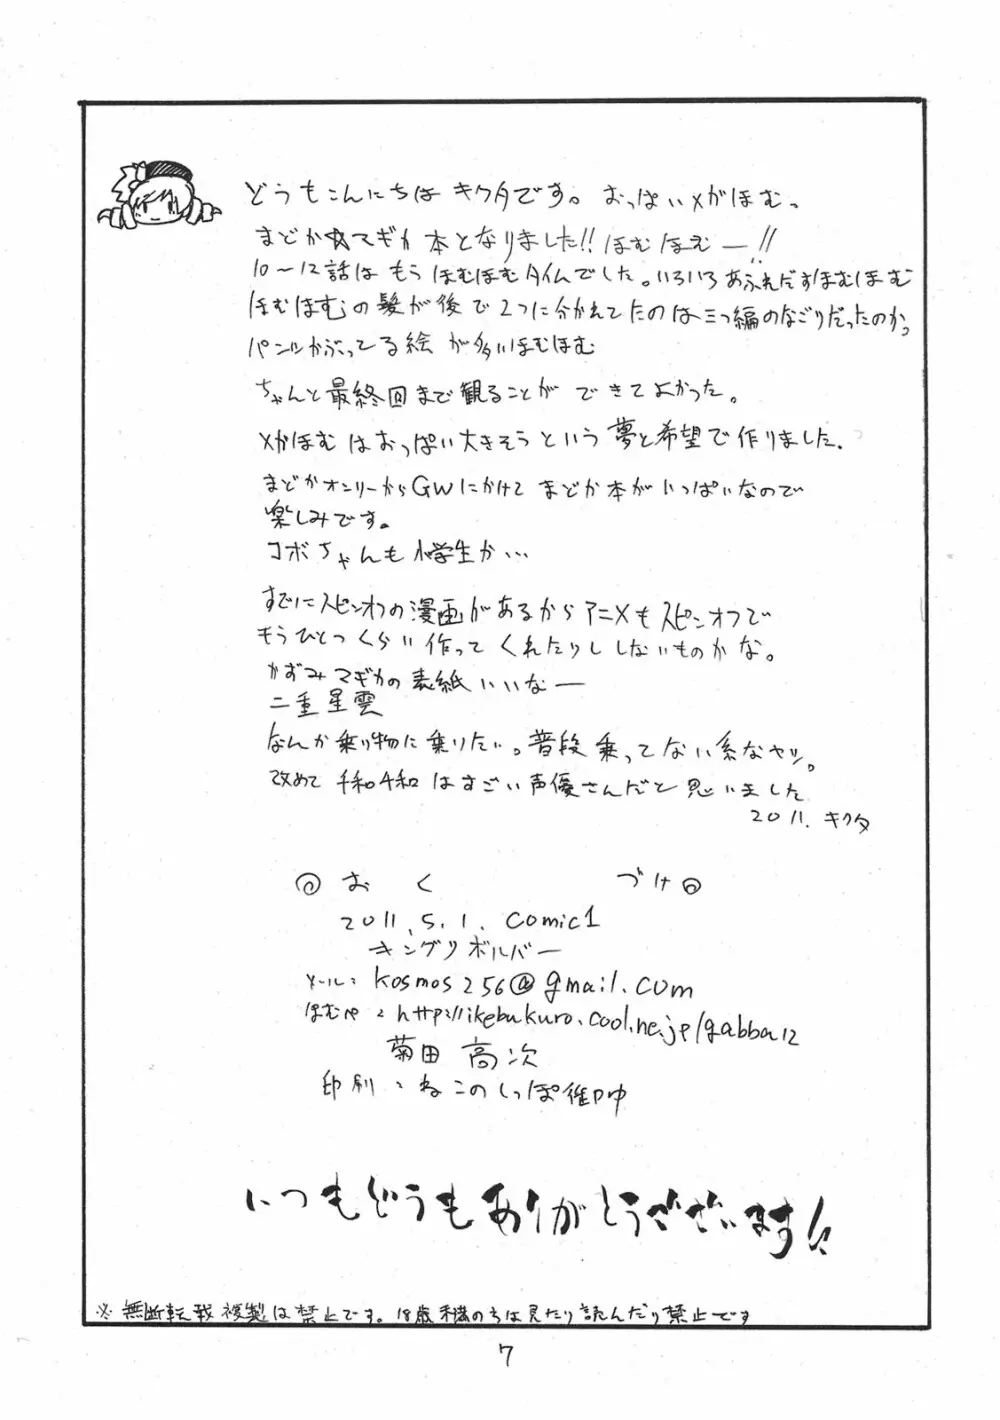 どうもこんにちは キクタです。 おっぱいメガほむっ
まどか☆マギカ 本となりました!! ほむほむー!!
10〜12話は もう ほむほむタイムでした。いろいろ あふれだすほむほむ
ほむほむの髪が後で2つに分かれてたのは三つ編のなごりだったのか。
パンツかぶってる絵 が多いほむほむ
ちゃんと最終回まで観ることが できてよかった。
メガほむ はおっぱい大きそう という 夢と希望で 作りました.
まどかオンリーからGWにかけて まどか本がいっぱいなので
楽しみです。
コボちゃんも 小学生か…
すでにスピンオフの漫画があるから アニメも スピンオフで
もうひとつくらい 作って くれたりし しないものかな。
かずみマギカの表紙 いいなー
二重星雲
なんか乗り物に乗りたい。普段 乗ってない系なヤツ。
改めて 千和千和 はすごい声優さんだと思いました
2011. キクタ
◎ おく づけ◎
2011.5.1. comic1
キングリボルバー
メール: kosmos256@gmail.com
ほむぺ: http://ikebukuro.cool.ne.jp/gabba12
菊田 高次
印刷: ねこのしっぽ
いつもどうもありがとうございます!!
※無断転載複製は禁止です。18歳未満の方は見たり読んだり禁止です
7